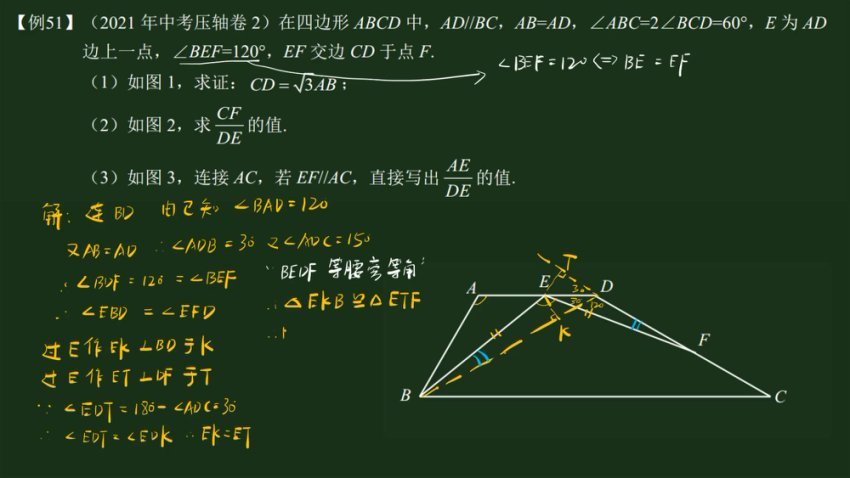 【例51】（2021 年中考压轴卷 2）在四边形 ABCD 中，AD//BC，AB=AD，∠ABC=2∠BCD=60°，E 为 AD
边上一点，∠BEF=120°，EF 交边 CD 于点 F.
∠BEF=120<=>BE=EF
（1）如图 1，求证：CD=√3AB；
（2）如图 2，求 CF/DE 的值.
（3）如图 3，连接 AC，若 EF//AC，直接写出 AE/DE 的值.
解：连 BD 由已知 ∠BAD=120
又AB=AD ∴∠ADB=30 又∠ADC=150
∴∠BDF=120=∠BEF
∴∠EBD=∠EFD
过E作EK⊥BD于K
过E作ET⊥DF于T
∵∠EDT=180-∠ADC=30
∴∠EDT=∠EDK ∴EK=ET
∵BEDF 等腰旁等角
∴△EKB≌△ETF
∴
T
A
E
30
D
30
120
K
F
B
C